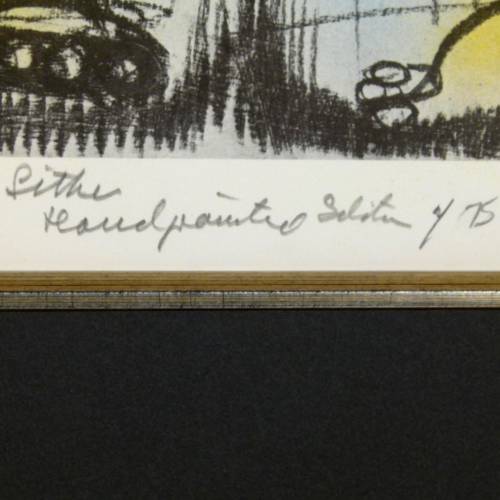 Litho
Handpainted Edition of 75